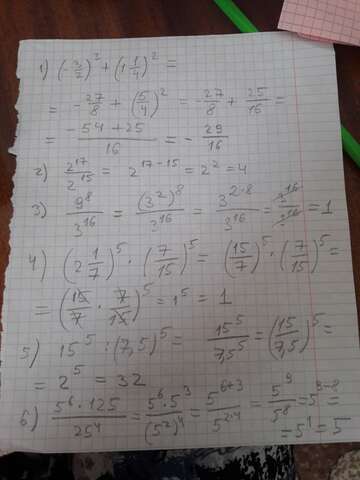 1) (-3/2)² + (1 1/4)² =
= -27/8 + (5/4)² = -27/8 + 25/16 =
= (-54 + 25)/16 = -29/16
2) 2¹⁷/2¹⁵ = 2¹⁷⁻¹⁵ = 2² = 4
3) 9⁸/3¹⁶ = (3²)⁸/3¹⁶ = 3²·⁸/3¹⁶ = 3¹⁶/3¹⁶ = 1
4) (2 1/7)⁵ · (7/15)⁵ = (15/7)⁵ · (7/15)⁵ =
= (15/7 · 7/15)⁵ = 1⁵ = 1
5) 15⁵ : (7,5)⁵ = 15⁵/7,5⁵ = (15/7,5)⁵ =
= 2⁵ = 32
6) 5⁶ · 125/25⁴ = 5⁶ · 5³/(5²)⁴ = 5⁶⁺³/5²·⁴ = 5⁹/5⁸ = 5⁹⁻⁸ =
= 5¹ = 5